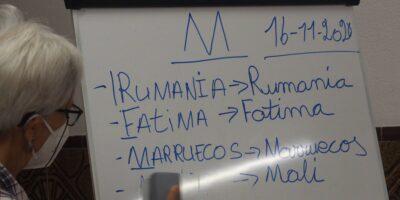 M 16-11-2020
-RUMANIA→Rumania
-FATIMA→Fatima
-MARRUECOS→Marruecos
→Mali